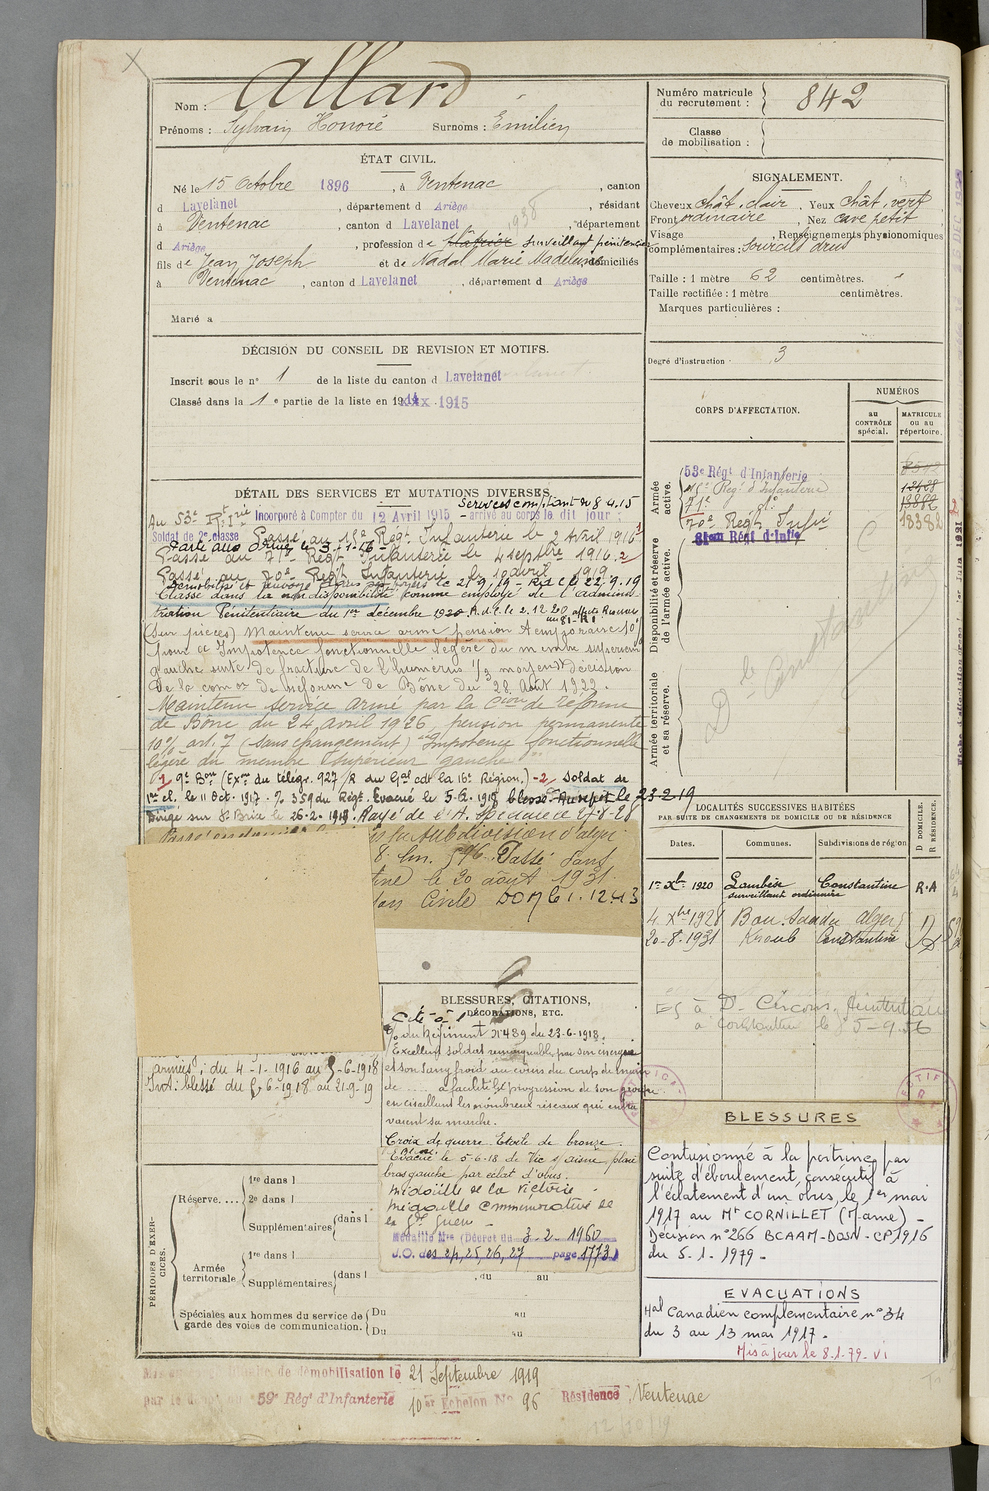 Nom : Allard
Prénoms : Sylvain Honoré Surnoms : Émilien
ÉTAT CIVIL.
Né le 15 Octobre 1896, à Ventenac, canton
d Lavelanet, département d Ariège, résidant
à Ventenac, canton d Lavelanet, département
d Ariège, profession de plâtrier surveillant pénitencier
fils de Jean Joseph et de Nadal Marie Madeleine domiciliés
à Ventenac, canton d Lavelanet, département d Ariège
Marié à
1938
DÉCISION DU CONSEIL DE REVISION ET MOTIFS.
Inscrit sous le n° 1 de la liste du canton d Lavelanet
Classé dans la 1e partie de la liste en 1915
DÉTAIL DES SERVICES ET MUTATIONS DIVERSES.
Services comptant du 8.4.15
Au 53e Rt Irie Incorporé à Compter du 12 Avril 1915 - arrivé au corps le dit jour
Soldat de 2e classe Passé au 18e Régt Infanterie le 2 Avril 1916 1
Parti aux Armées le 3-1-16
Passé au 71e Régt Infanterie le 4 septbre 1916. 2
Passé au 70e Régt Infanterie le 10 avril 1919
le 21.9.19 - R.d.C. le 22.9.19
Classé dans la non disponibilité comme employé de l'adminis-
tration Pénitentiaire du 1er décembre 1920 A.d.C. le 2.12.20
(sur pièces) Maintenu service armé pension temporaire 10%
pour Impotence fonctionnelle légère du membre supérieur
gauche suite de fracture de l'humérus 1/3 moyen décision
de la comon de réforme de Bône du 28 Août 1922.
Maintenu service armé par la Cion de Réforme
de Bône du 24 avril 1926, pension permanente
10% art. 7 (sans changement) "Impotence fonctionnelle
légère du membre supérieur gauche"
1 9e Bon (Exon du télégr. 927/R du Gal cdt la 16e Région.) - 2 Soldat de
1re cl. le 11 Oct. 1917. % 359 du Régt. Evacué le 5-6-1918 blessé. le 23-2-19
Dirigé sur St Brix le 26-2-1919. Rayé de l'A. Spéciale
la Subdivision d'alger
Passé dans
tine le 20 août 1931.
Civile
armées : du 4-1-1916 au 5-6-1918
Int : blessé du 5-6-1918 au 21-9-19
BLESSURES, CITATIONS,
DÉCORATIONS, ETC.
Cité à l'
% du Régiment N° 489 du 23-6-1918.
Excellent soldat remarquable par son énergie
et son sang froid au cours du coup de main
de .... a facilité la progression de son groupe
en cisaillant les nombreux réseaux qui entra
vaient sa marche.
Croix de guerre Etoile de bronze.
Evacué le 5-6-18 de Vic s/aisne, plaie
bras gauche par éclat d'obus.
Médaille de la Victoire
Médaille Commémorative de
la Gde Guerre -
Médaille Mre (Décret du 3-2-1960
J.O. des 24, 25, 26, 27 page 1773)
PÉRIODES D'EXER-
CICES.
Réserve....
1re dans l
2e dans l
Supplémentaires dans l
Armée
territoriale.
1re dans l
Supplémentaires dans l
, du au
Spéciales aux hommes du service de
garde des voies de communication.
Du au
Du au
démobilisation le 21 Septembre 1919
59e Régt d'Infanterie 10er Echelon No 96 Résidence Ventenac
12/10/19
Numéro matricule
du recrutement : 842
Classe
de mobilisation :
SIGNALEMENT.
Cheveux chât. clair, Yeux chât. vert
Front ordinaire, Nez cave petit
Visage, Renseignements physionomiques
complémentaires : sourcils drus
Taille : 1 mètre 62 centimètres.
Taille rectifiée : 1 mètre centimètres.
Marques particulières :
Degré d'instruction 3
CORPS D'AFFECTATION.
NUMÉROS
au
CONTRÔLE
spécial.
MATRICULE
OU AU
répertoire.
Armée
active.
53e Régt d'Infanterie
18e Reg. d'Infanterie 12428
71e do
70e Régt Infie 18382
Disponibilité et réserve
de l'armée active.
81eme Régt d'Infie
Armée territoriale
et sa réserve.
Dlle Constantine
LOCALITÉS SUCCESSIVES HABITÉES
PAR SUITE DE CHANGEMENTS DE DOMICILE OU DE RÉSIDENCE
Dates. Communes. Subdivisions de région
D DOMICILE.
R RÉSIDENCE.
1er Xbre 1920 Lambèse Constantine R.A
surveillant ordinaire
4 Xbre 1928 Alger D
20-8-1931 Kroub Constantine D
BLESSURES
Contusionné à la poitrine par
suite d'éboulement, consécutif à
l'éclatement d'un obus, le 1er mai
1917 au Mt CORNILLET (Marne) -
Décision n° 266 BCAAM-DOSN-CP 1916
du 5-1-1979 -
EVACUATIONS
Hal Canadien complémentaire n° 34
du 3 au 13 mai 1917 -
Mis à jour le 8.1.79. VI